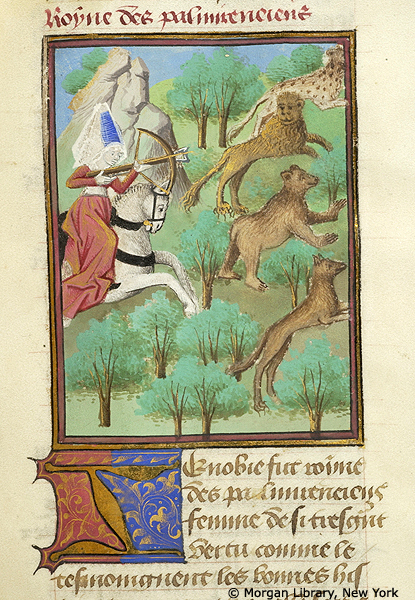 Royne des palmireneiens
ZEnobie fut royne
des palmireneiens
femme de si tresgrāt
vertu comme le
tesmoingnent les bonnes his
© Morgan Library, New York